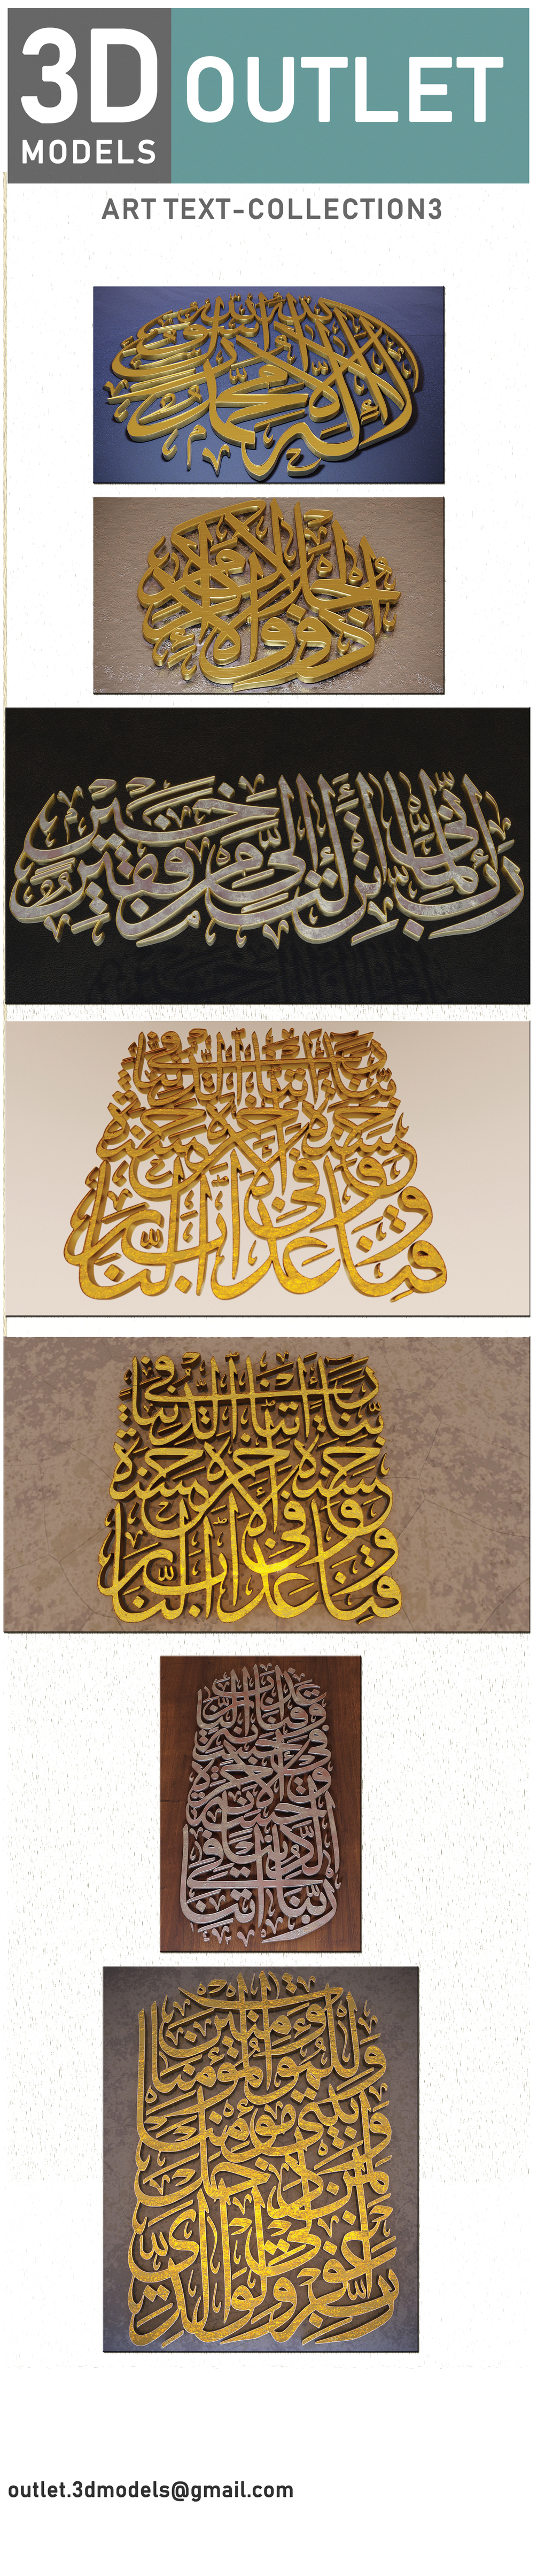 3D
MODELS
OUTLET
ART TEXT-COLLECTION3
لا إله إلا الله محمد
رب إني لما أنزلت إلي من خير فقير
ربنا آتنا في الدنيا
حسنة وفي الآخرة حسنة
وقنا عذاب النار
ربنا آتنا في الدنيا
حسنة وفي الآخرة حسنة
وقنا عذاب النار
ربنا آتنا
في الدنيا
حسنة و
في الآخرة
حسنة
وقنا عذاب النار
رب اغفر لي ولوالدي
ولمن دخل
بيتي مؤمنا
وللمؤمنين والمؤمنات
outlet.3dmodels@gmail.com